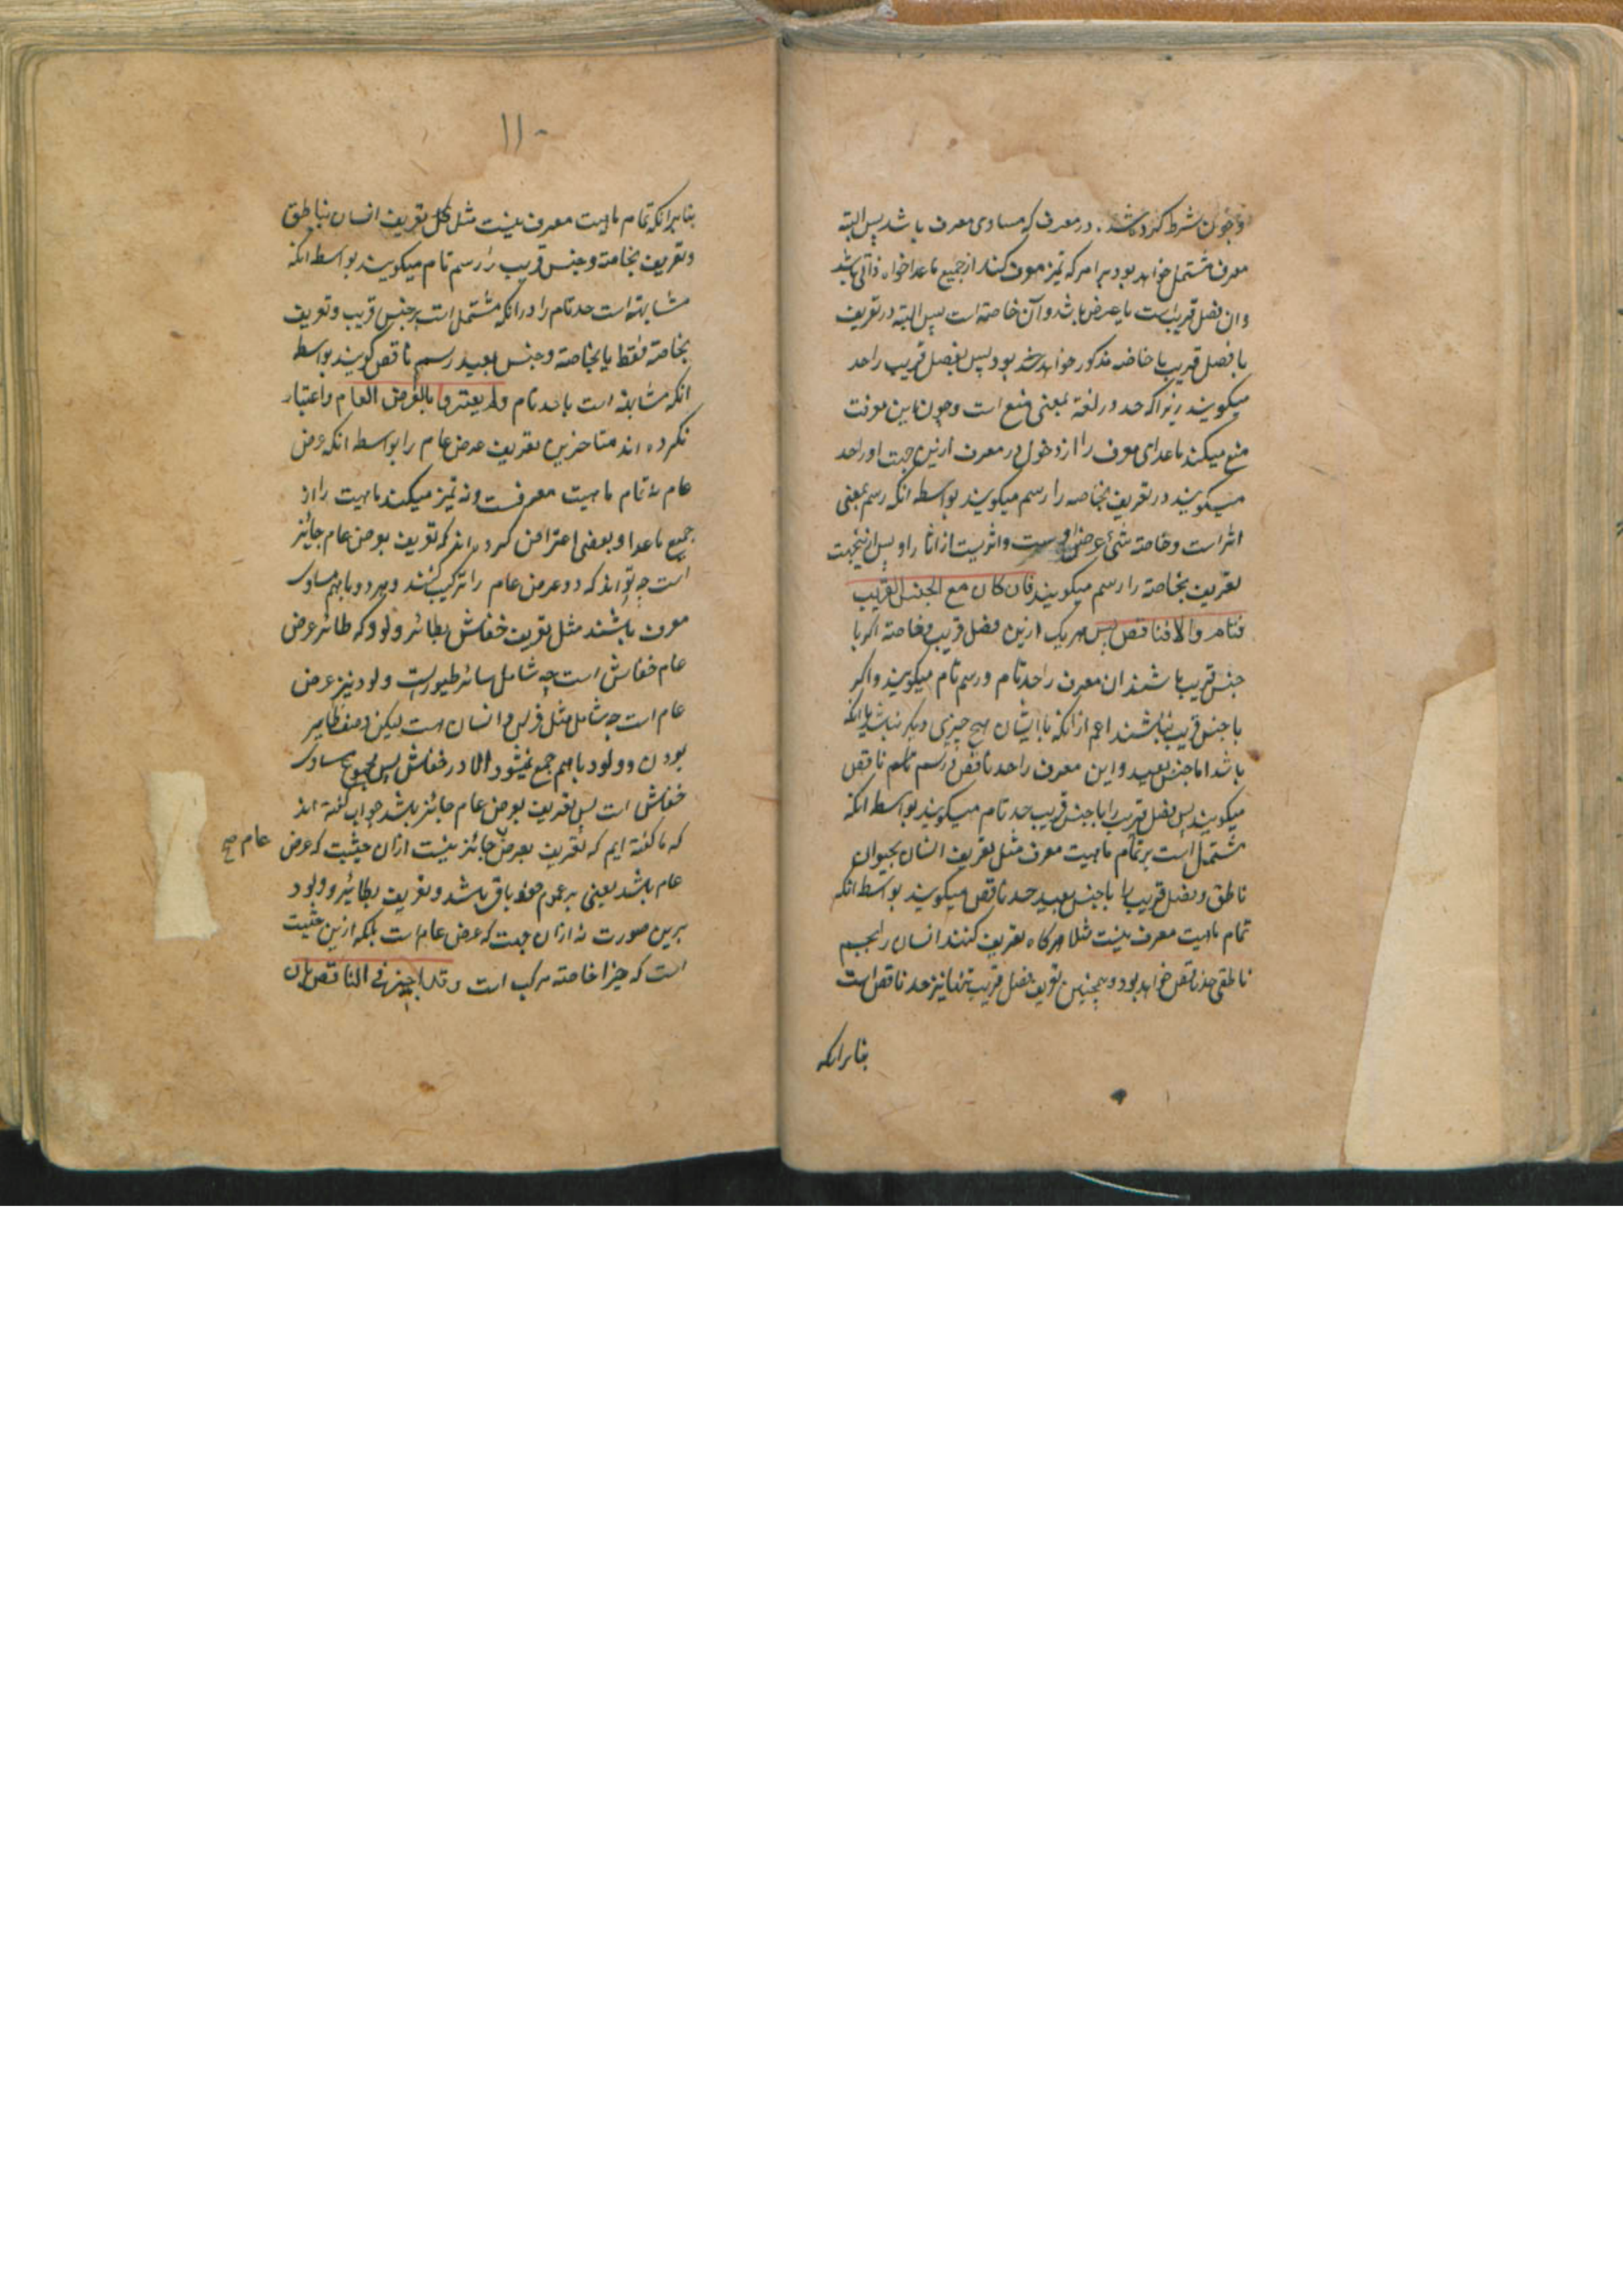 و چون شرط کرده شد در معرف که مساوی معرف باشد پس البته
معرف مشتمل خواهد بود بر امر که تمیز معرف کند از جمیع ماعدا خواه ذاتی باشد
و ان فصل قریب است یا عرض باشد و آن خاصه است پس البته در تعریف
یا فصل قریب یا خاصه مذکور خواهد بود پس بفصل قریب را حد
میکویند زیرا که حد در لغة بمعنی منع است و چون این معرف
منع میکند ماعدای معرف را از دخول در معرف ازین جهت او را حد
میکویند و تعریف بخاصه را رسم میکویند بواسطه انکه رسم بمعنی
اثر است و خاصه شیٔ عرض اوست و اثریست از اثار او پس ازینجهت
تعریف بخاصه را رسم میکویند فان کان مع الجنس القریب
فتام والا فناقص پس هر یک ازین فصل قریب و خاصه اکر با
جنس قریب باشند ان معرف را حد تام و رسم تام میکویند و اکر
با جنس قریب نباشند اعم از انکه با ایشان هیچ چیزی دیکر نباشد یا انکه
باشد اما جنس بعید و این معرف را حد ناقص و رسم ناقص
میکویند پس فصل قریب را با جنس قریب حد تام میکویند بواسطه انکه
مشتمل است بر تمام ماهیت معرف مثل تعریف انسان بحیوان
ناطق و فصل قریب را با جنس بعید حد ناقص میکویند بواسطه انکه
تمام ماهیت معرف نیست مثلا هرکاه تعریف کنند انسان را بجسم
ناطق حد ناقص خواهد بود و همچنین تعریف بفصل قریب تنها نیز حد ناقص است
بنابرانکه
۱۱۰
بنابرانکه تمام ماهیت معرف نیست مثل تعریف انسان بناطق
و تعریف بخاصه و جنس قریب را رسم تام میکویند بواسطه انکه
مشابه است حد تام را در انکه مشتمل است بر جنس قریب و تعریف
بخاصه فقط یا بخاصه و جنس بعید رسم ناقص کویند بواسطه
انکه مشابه است با حد تام ولم یعتبروا بالعرض العام و اعتبار
نکرده اند متاخرین تعریف عرض عام را بواسطه انکه عرض
عام نه تمام ماهیت معرفست و نه تمیز میکند ماهیت را از
جمیع ماعدا و بعضی اعتراض کرده اند که تعریف بعرض عام جائز
است چه تواند که دو عرض عام را ترکیب کنند و هر دو باهم مساوی
معرف باشند مثل تعریف خفاش بطائر ولود که طائر عرض
عام خفاش است چه شامل سائر طیور است و ولود نیز عرض
عام است چه شامل مثل فرس و انسان هست لیکن وصف طایر
بودن و ولود باهم جمع نمیشود الا در خفاش پس مجموع مساوی
خفاش است پس تعریف بعرض عام جائز باشد جواب کفته اند
که ما کفته ایم که تعریف بعرض جائز نیست ازان حیثیت که عرض
عام صح
عام باشد یعنی بر عموم خود باقی باشد و تعریف بطائر و ولود
برین صورت نه ازان جهت که عرض عام است بلکه ازین حیثیت
است که خاصه مرکب است وقد اجیز فی الناقص ان